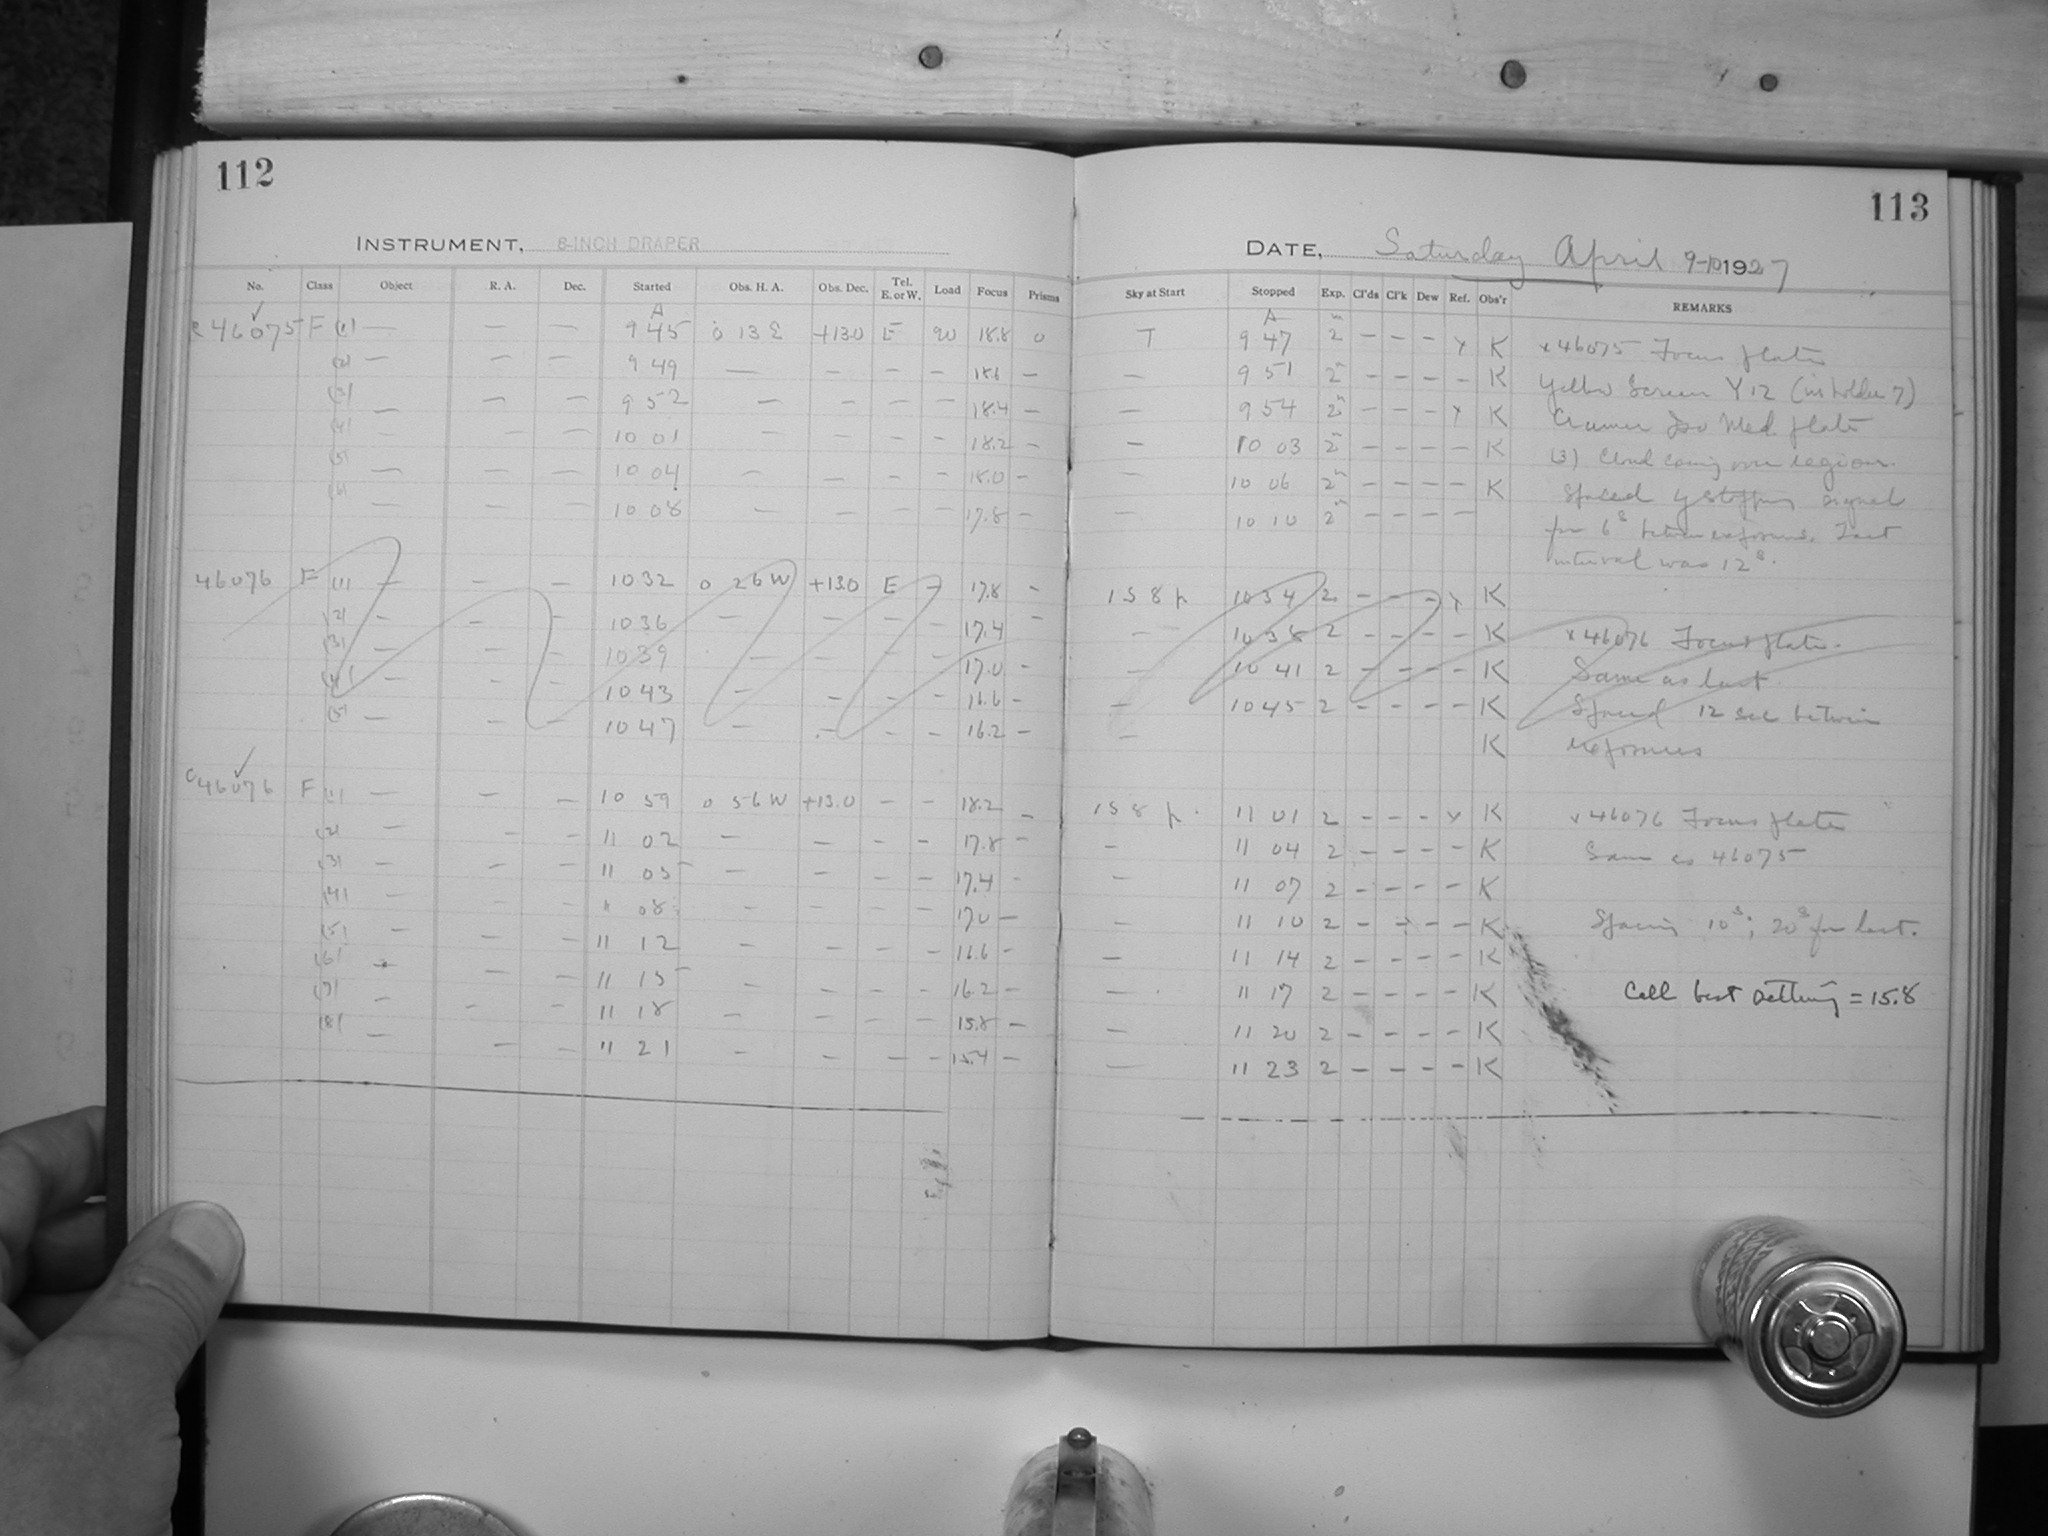 112
INSTRUMENT, 8-INCH DRAPER
No. Class Object R. A. Dec. Started Obs. H. A. Obs. Dec. Tel. E. or W. Load Focus Prisms
A
c 46075 F (1) — — — 9 45 0 13 E +13.0 E 90 18.8 0
(2) — — — 9 49 — — — — 18.6 —
(3) — — — 9 52 — — — — 18.4 —
(4) — — 10 01 — — — — 18.2 —
(5) — — — 10 04 — — — — 18.0 —
(6) — — — 10 08 — — — — 17.8 —
46076 F (1) — — — 10 32 0 26 W +13.0 E — 17.8 —
(2) — — — 10 36 — — — — 17.4 —
(3) — — — 10 39 — — — — 17.0 —
(4) — — — 10 43 — — — — 16.6 —
(5) — — — 10 47 — — — — 16.2 —
c 46076 F (1) — — — 10 59 0 56 W +13.0 — — 18.2 —
(2) — — — 11 02 — — — — 17.8 —
(3) — — — 11 05 — — — — 17.4 —
(4) — — — " 08 — — — — 17.0 —
(5) — — — 11 12 — — — — 16.6 —
(6) — — — 11 15 — — — — 16.2 —
(7) — — — 11 18 — — — — 15.8 —
(8) — — — 11 21 — — — — 15.4 —
113
DATE, Saturday April 9-10 1927
Sky at Start Stopped Exp. Cl'ds Cl'k Dew Ref. Obs'r REMARKS
A m
T 9 47 2 — — — x K x 46075 Focus plate
— 9 51 2m — — — — K Yellow Screen Y 12 (in holder 7)
— 9 54 2m — — — x K Cramer Iso Med. plate
— 10 03 2m — — — — K (3) Cloud coming over region.
— 10 06 2m — — — — K Spaced by stopping signal
— 10 10 2m — — — — for 6s between exposures. Last
interval was 12s.
158 p 10 34 2 — — — x K
— 10 38 2 — — — — K x 46076 Focus plate.
— 10 41 2 — — — — K Same as last
— 10 45 2 — — — — K Spaced 12 sec between
— K exposures
158 p. 11 01 2 — — — x K x 46076 Focus plate
— 11 04 2 — — — — K Same as 46075
— 11 07 2 — — — — K
— 11 10 2 — — — — K Spacing 10s; 20s for last.
— 11 14 2 — — — — K
— 11 17 2 — — — — K Call best setting = 15.8
— 11 20 2 — — — — K
— 11 23 2 — — — — K